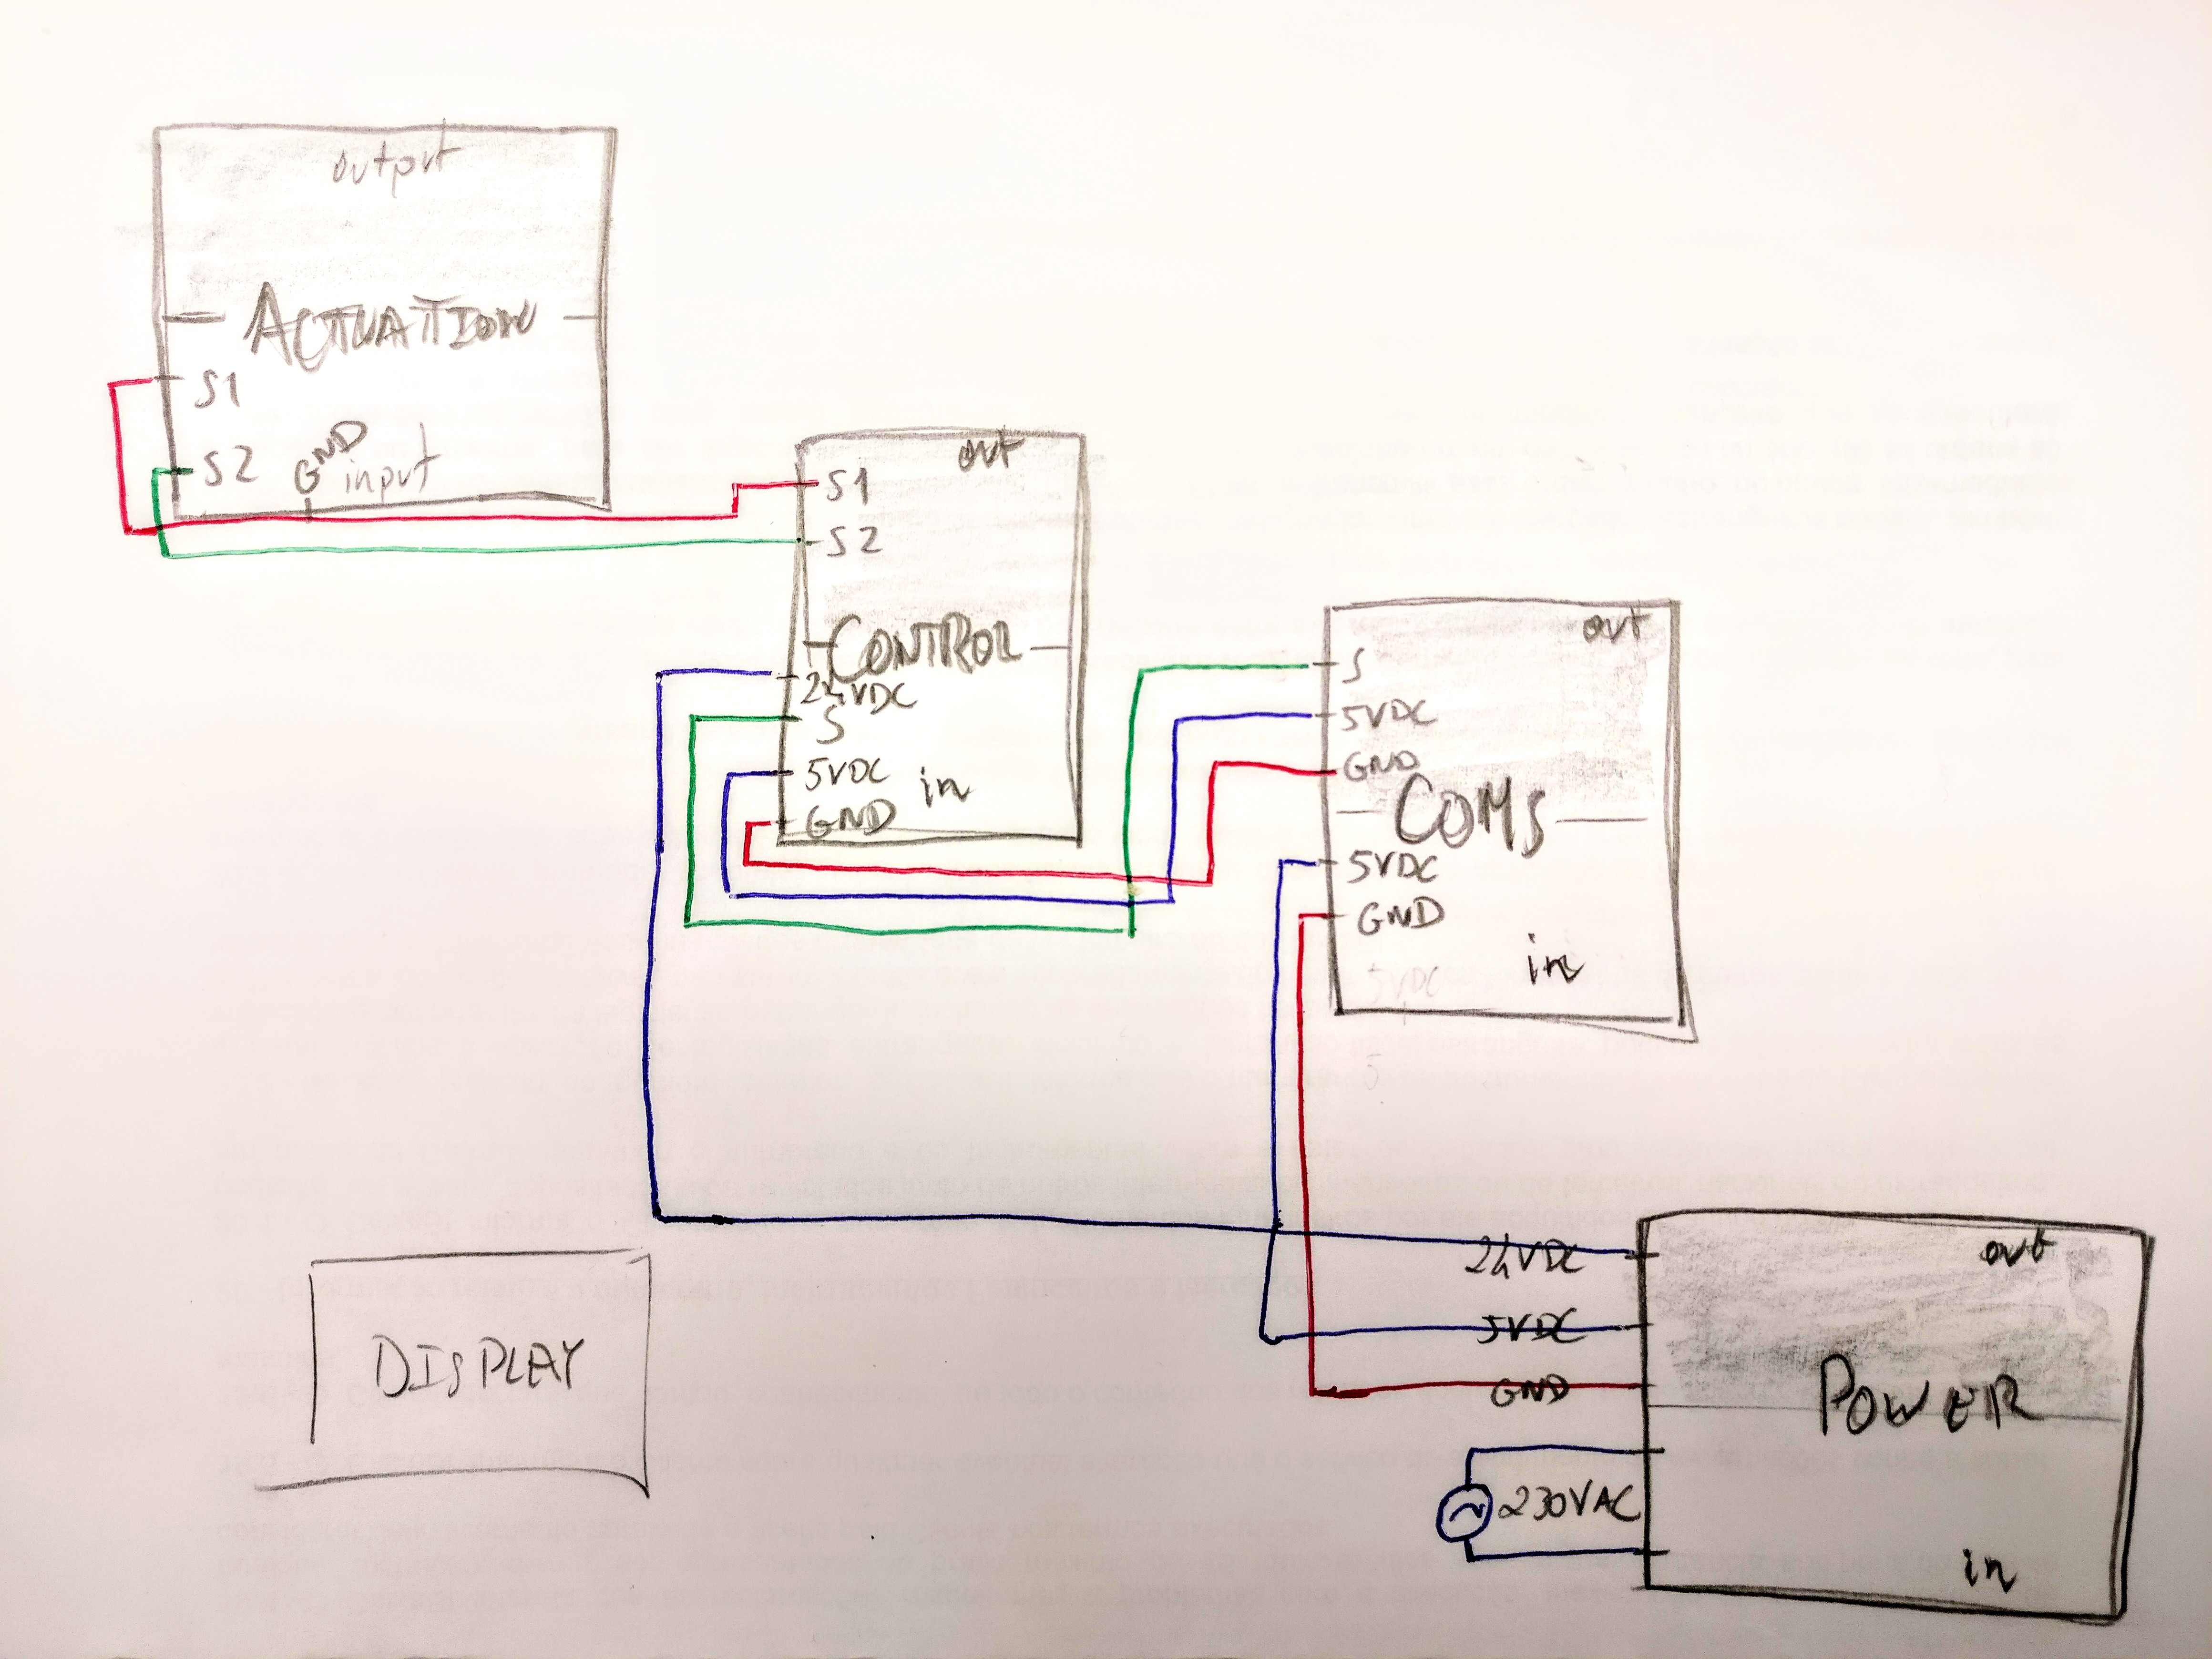 output
ACTUATION
S1
S2
GND
input
out
S1
S2
CONTROL
24VDC
S
5VDC
GND
in
out
S
5VDC
GND
COMS
5VDC
GND
in
5VDC
5
DISPLAY
out
24VDC
5VDC
GND
POWER
230VAC
in